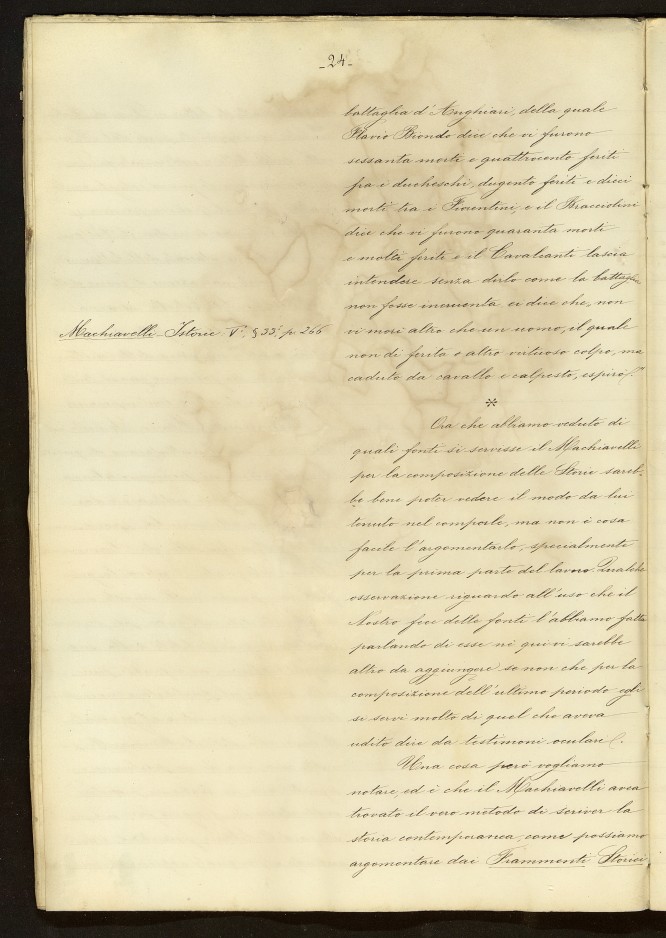 -24-
battaglia d'Anghiari, della quale
Flavio Biondo dice che vi furono
sessanta morti e quattrocento feriti
fra i ducheschi, dugento feriti e dieci
morti tra i Fiorentini, e il Bracciolini
dice che vi furono quaranta morti
e molti feriti e il Cavalcanti lascia
intendere senza dirlo come la battaglia
non fosse incruenta ci dice che, non
Machiavelli - Istorie V° § 33° p. 266
vi morì altro che un uomo, il quale
non di ferita o altro virtuoso colpo, ma
caduto da cavallo e calpesto, espirò."
*
Ora che abbiamo veduto di
quali fonti si servisse il Machiavelli
per la composizione delle Storie sareb-
be bene poter vedere il modo da lui
tenuto nel comporle, ma non è cosa
facile l'argomentarlo, specialmente
per la prima parte del lavoro. Qualche
osservazione riguardo all'uso che il
Nostro fece delle fonti l'abbiamo fatta
parlando di esse nè qui vi sarebbe
altro da aggiungere se non che per la
composizione dell'ultimo periodo egli
si servì molto di quel che aveva
udito dire da testimoni oculari.
Una cosa però vogliamo
notare ed è che il Machiavelli avea
trovato il vero metodo di scriver la
storia contemporanea, come possiamo
argomentare dai Frammenti Storici